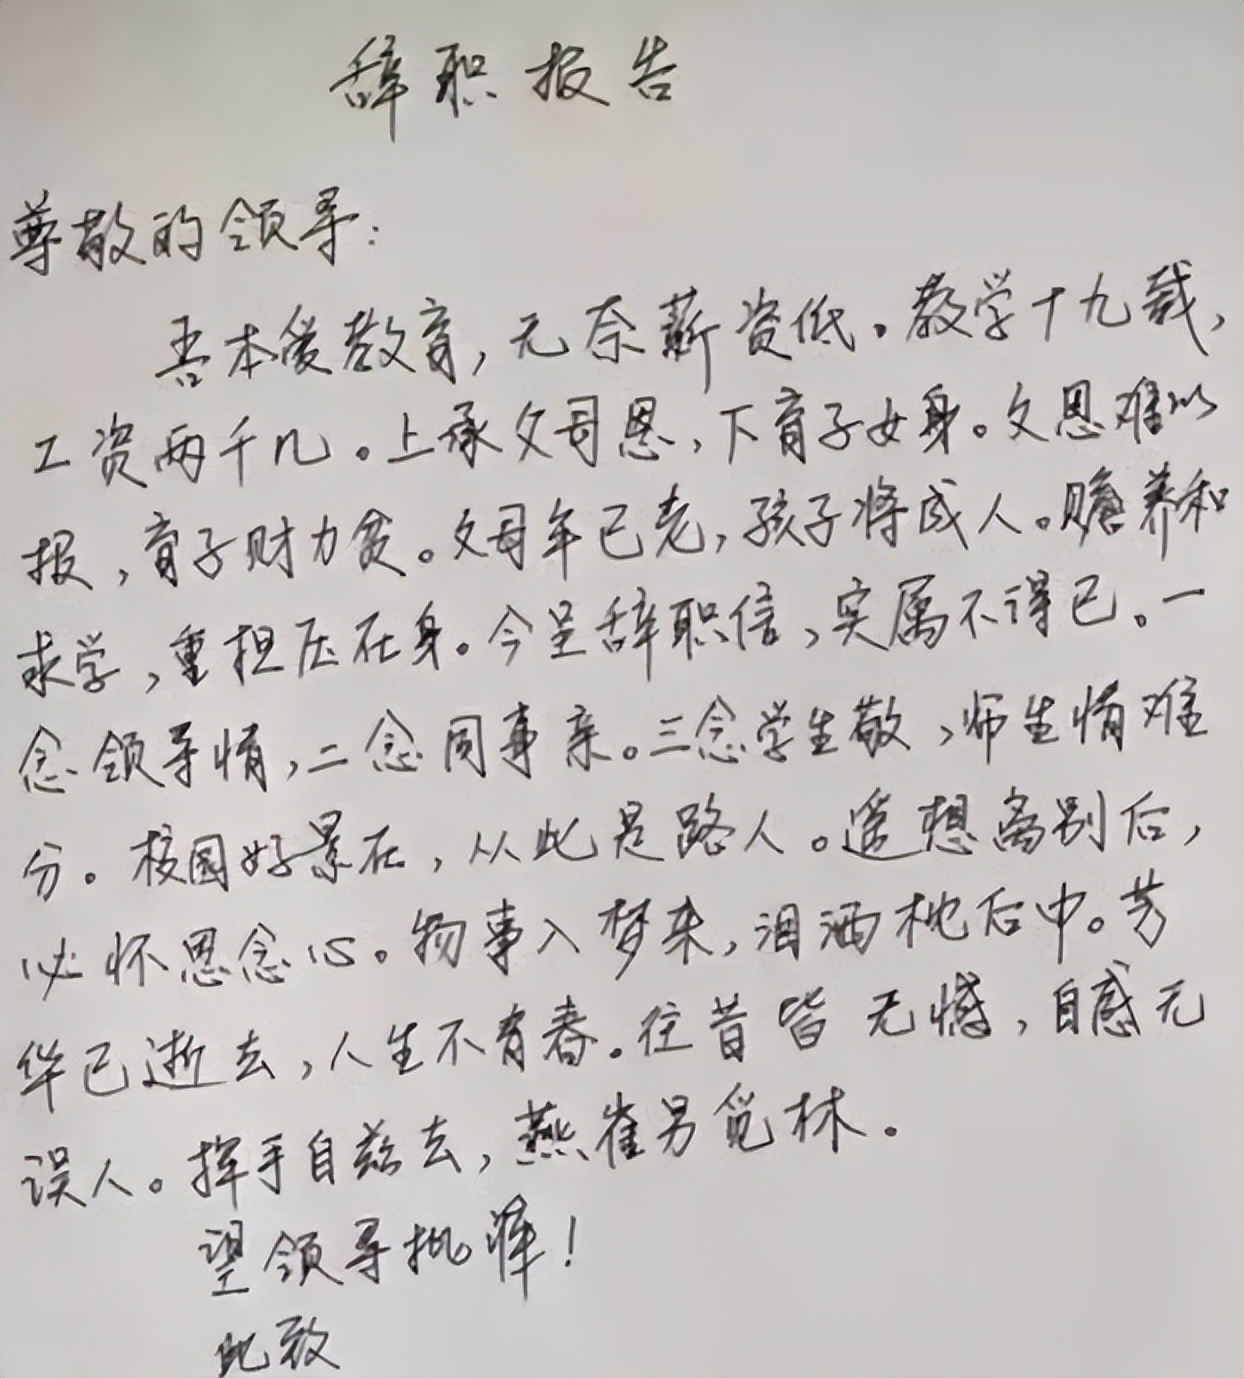 辞职报告
尊敬的领导:
吾本爱教育,无奈薪资低。教学十九载,
工资两千几。上承父母恩,下育子女身。父恩难以
报,育子财力贫。父母年已老,孩子将成人。赡养和
求学,重担压在身。今呈辞职信,实属不得已。一
念领导情,二念同事亲。三念学生敬,师生情难
分。校园好景在,从此是路人。遥想离别后,
必怀思念心。物事入梦来,泪洒枕后中。芳
华已逝去,人生不有春。往昔皆无憾,自感无
误人。挥手自兹去,燕雀另觅林。
望领导批准!
此致